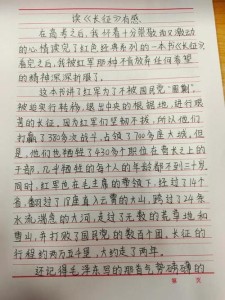 读《长征》有感
在高考之后,我怀着十分崇敬而又激动
的心情读完了红色经典系列的一本书《长征》
看完之后,我被红军那种不肯放弃任何希望
的精神深深折服了。
这本书讲了红军为了不被国民党“围剿”,
被迫实行转移,退出中央的根据地,进行艰
苦的长征。因为红军们坚韧不拔,所以他们
打赢了380多次战斗,占领了700多座大城,但
是,他们也牺牲了430多个职位在营长之上的
干部,几乎牺牲的每个人的年龄都不到三十岁,
同时,红军也在毛主席的带领下,经过了14个
省,翻过了18座直入云霄的大山,跨过了24条
水流湍急的大河,走过了无数的荒草地和
雪山,并打败了国民党的数百个团,长征的
行程约两万五千里,大约走了两年。
还记得毛泽东写的那首气势磅礴的